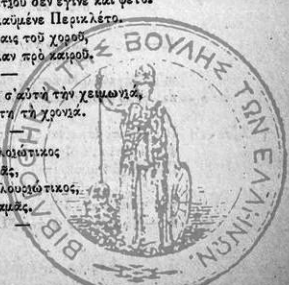 τίου δὲν ἔγινε καὶ φέτο.
καϋμένε Περικλέτο.
αις τοῦ χοροῦ,
αν πρὸ καιροῦ.
σ' αὐτὴ τὴν χειμωνιά,
τη τὴ χρονιά.
λοιώτικος
ᾶς,
λουριώτικος,
αμᾶς.
ΒΙΒΛΙΟΘΗΚΗ ΤΗΣ ΒΟΥΛΗΣ ΤΩΝ ΕΛΛΗΝΩΝ